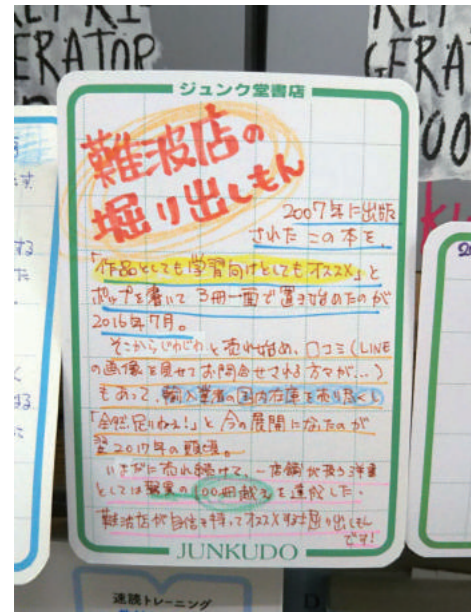 REFRI-
GERATOR
REFRI-
GERA
ジュンク堂書店
難波店の
堀り出しもん
2007年に出版
された この本を、
「作品としても学習向けとしてもオススメ」と
ポップを書いて 3冊一面で置き始めたのが
2016年7月。
そこからじわじわと売れ始め、口コミ(LINE
の画像を見せてお問合せされる方々が…)
もあって、輸入業者の国内在庫を売り尽くし
「全然足りねぇ!」と今の展開になったのが
翌2017年の頭頃。
いまだに売れ続けて、一店舗が扱う洋書
としては驚異の100冊越えを達成した、
難波店が自信を持ってオススメする堀り出しもん
です!
JUNKUDO
速読トレーニング